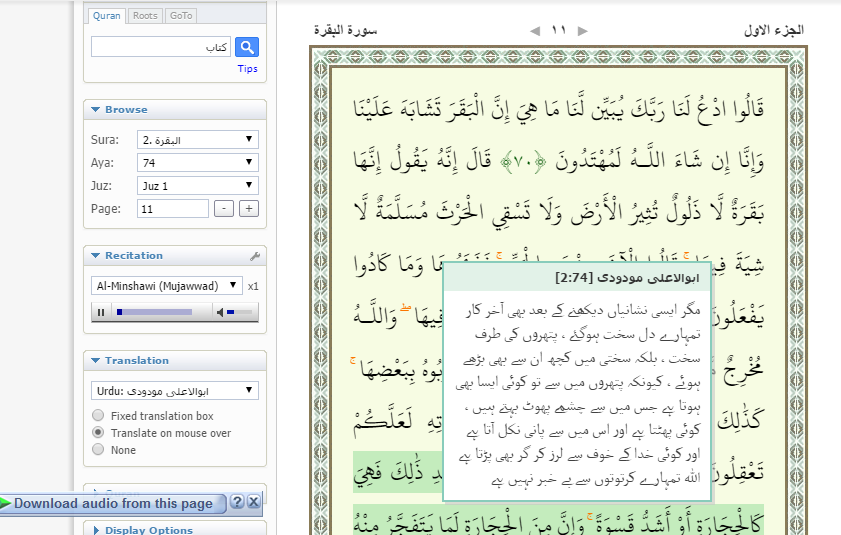 Quran Roots GoTo
كتاب
Tips
Browse
Sura: 2. البقرة
Aya: 74
Juz: Juz 1
Page: 11 - +
Recitation
Al-Minshawi (Mujawwad) x1
Translation
Urdu: ابوالاعلی مودودی
Fixed translation box
Translate on mouse over
None
Download audio from this page ? X
Display Options
الجزء الاول ١١ سورة البقرة
قَالُوا ادْعُ لَنَا رَبَّكَ يُبَيِّن لَّنَا مَا هِيَ إِنَّ الْبَقَرَ تَشَابَهَ عَلَيْنَا
وَإِنَّا إِن شَاءَ اللَّـهُ لَمُهْتَدُونَ ﴿٧٠﴾ قَالَ إِنَّهُ يَقُولُ إِنَّهَا
بَقَرَةٌ لَّا ذَلُولٌ تُثِيرُ الْأَرْضَ وَلَا تَسْقِي الْحَرْثَ مُسَلَّمَةٌ لَّا
شِيَةَ وَمَا كَادُوا
يَفْعَلُونَ فِيهَا ۖ وَاللَّـهُ
مُخْرِجٌ بِبَعْضِهَا ۚ
كَذَٰلِكَ لَعَلَّكُمْ
تَعْقِلُونَ ذَٰلِكَ فَهِيَ
كَالْحِجَارَةِ أَوْ أَشَدُّ قَسْوَةً ۚ وَإِنَّ مِنَ الْحِجَارَةِ لَمَا يَتَفَجَّرُ مِنْهُ
ابوالاعلی مودودی [2:74]
مگر ایسی نشانیاں دیکھنے کے بعد بھی آخر کار
تمہارے دل سخت ہوگئے ، پتھروں کی طرف
سخت ، بلکہ سختی میں کچھ ان سے بھی بڑھے
ہوئے ، کیونکہ پتھروں میں سے تو کوئی ایسا بھی
ہوتا ہے جس میں سے چشمے پھوٹ بہتے ہیں ،
کوئی پھٹتا ہے اور اس میں سے پانی نکل آتا ہے
اور کوئی خدا کے خوف سے لرز کر گر بھی پڑتا ہے
اللہ تمہارے کرتوتوں سے بے خبر نہیں ہے